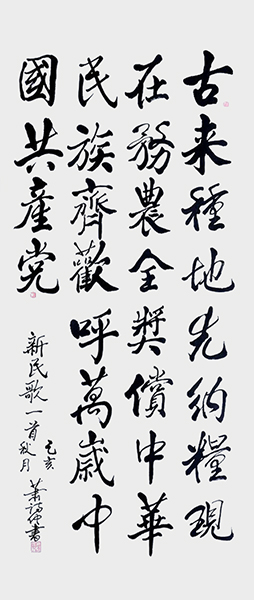 古来種地先纳糧現
在務農全獎償中華
民族齊歡呼萬歲中
國共産党
新民歌一首
己亥
秋月
書